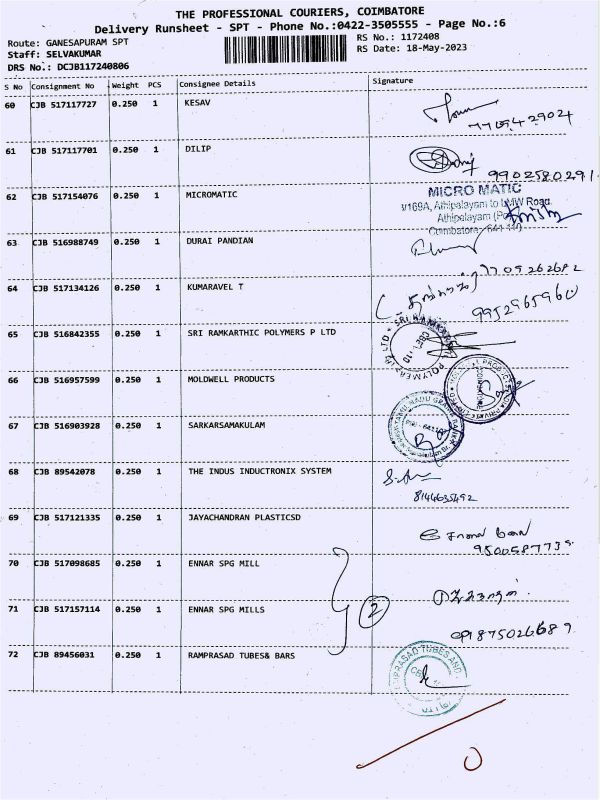 THE PROFESSIONAL COURIERS, COIMBATORE
Delivery Runsheet - SPT - Phone No.:0422-3505555 - Page No.:6
Route: GANESAPURAM SPT
RS No.: 1172408
Staff: SELVAKUMAR
RS Date: 18-May-2023
DRS No.: DCJB117240806
S No Consignment No Weight PCS Consignee Details Signature
60 CJB 517117727 0.250 1 KESAV
61 CJB 517117701 0.250 1 DILIP
9902580291
62 CJB 517154076 0.250 1 MICROMATIC
MICRO MATIC
Athipalayam to LMW Road
Athipalayam
Coimbatore
63 CJB 516988749 0.250 1 DURAI PANDIAN
7709262682
64 CJB 517134126 0.250 1 KUMARAVEL T
9952965960
65 CJB 516842355 0.250 1 SRI RAMKARTHIC POLYMERS P LTD
66 CJB 516957599 0.250 1 MOLDWELL PRODUCTS
67 CJB 516903928 0.250 1 SARKARSAMAKULAM
68 CJB 89542078 0.250 1 THE INDUS INDUCTRONIX SYSTEM
8144635492
69 CJB 517121335 0.250 1 JAYACHANDRAN PLASTICSD
9500587739
70 CJB 517098685 0.250 1 ENNAR SPG MILL
71 CJB 517157114 0.250 1 ENNAR SPG MILLS
2
72 CJB 89456031 0.250 1 RAMPRASAD TUBES& BARS